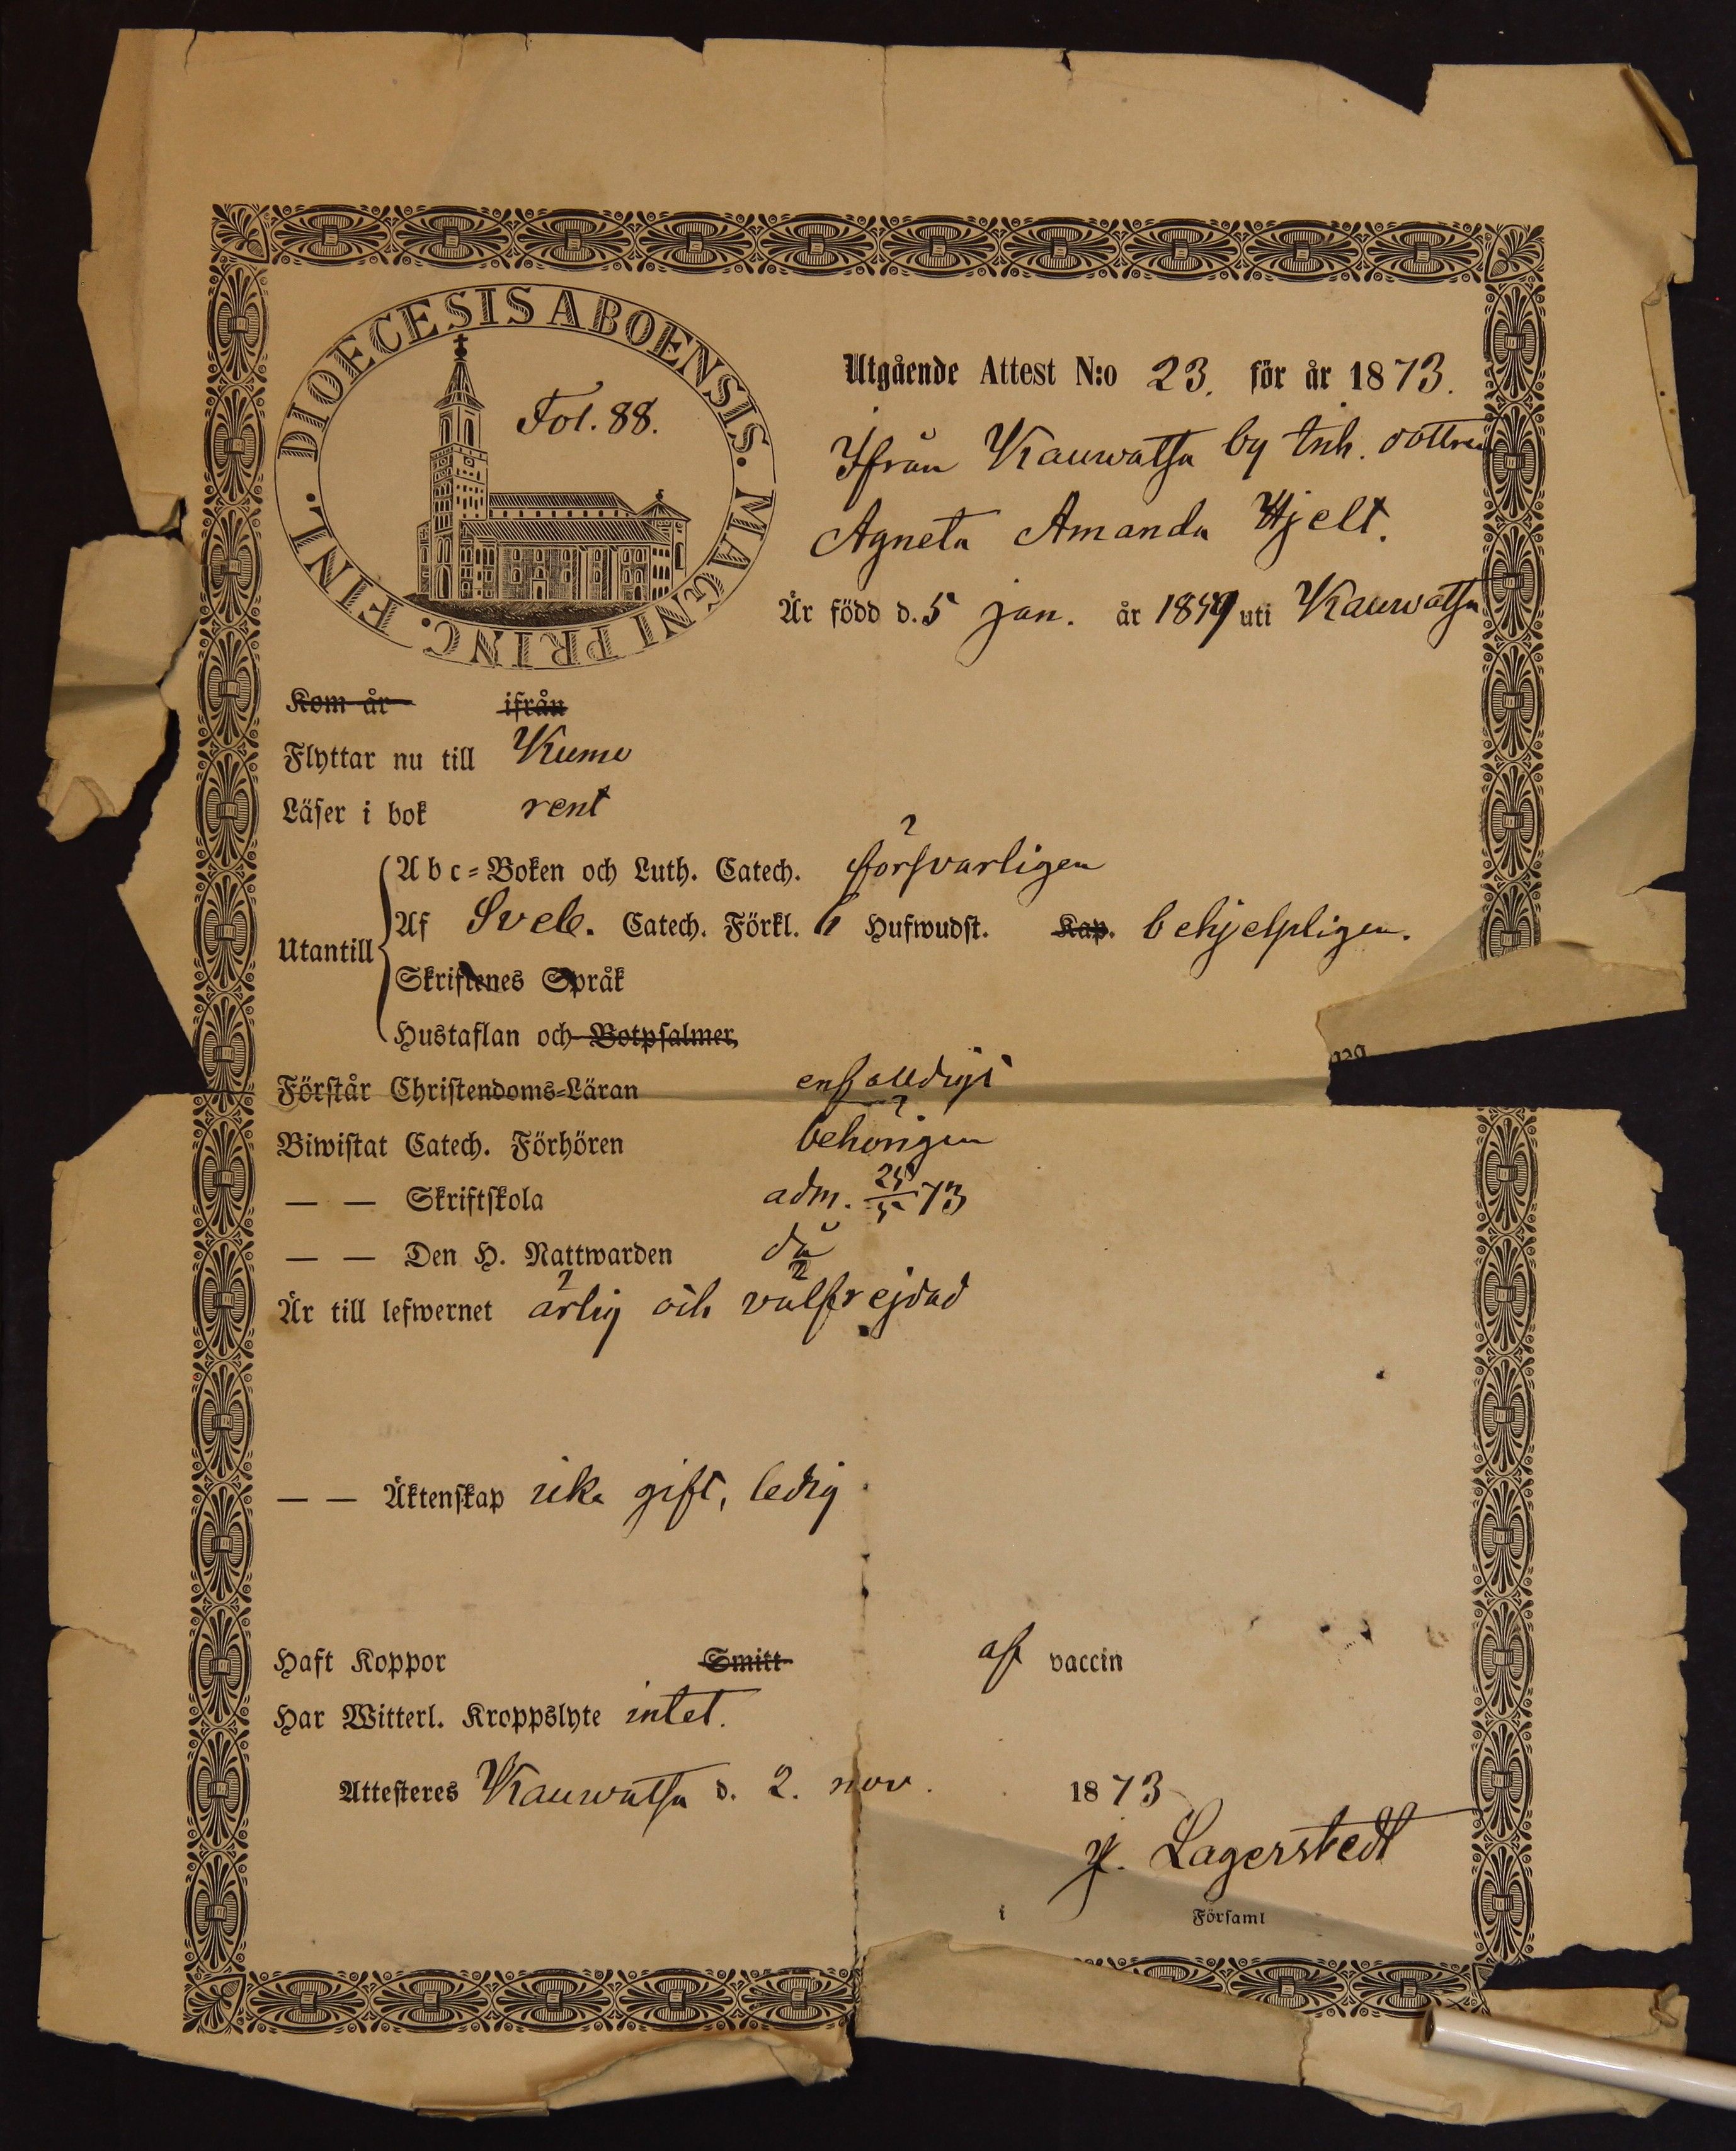 DIOECESIS ABOENSIS. MAGNI PRINC. FINL.
Fol. 88.
Utgående Attest N:o 23. för år 1873.
Ifrån Kauwatsa by inh. dottren
Agneta Amanda Hjelt.
Är född d. 5 jan. år 1859 uti Kauwatsa
Kom år ifrån
Flyttar nu till Kumo
Läser i bok rent
Abc-Boken och Luth. Catech. försvarligen
Utantill
Af Sveb. Catech. Förkl. 6 Hufwudst. Kap. behjelpligen.
Skriftenes Språk
Hustaflan och Botpsalmer,
Förstår Christendoms-Läran enfaldigt
Biwistat Catech. Förhören behörigen
— — Skriftskola adm. 25/5 73
— — Den H. Nattwarden då
Är till lefwernet ärlig och välfrejdad
— — Äktenskap icke gift, ledig
Haft Koppor Smitt af vaccin
Har Witterl. Kroppslyte intet.
Attesteres Kauwatsa d. 2. nov. 1873
Lagerstedt
i Församl